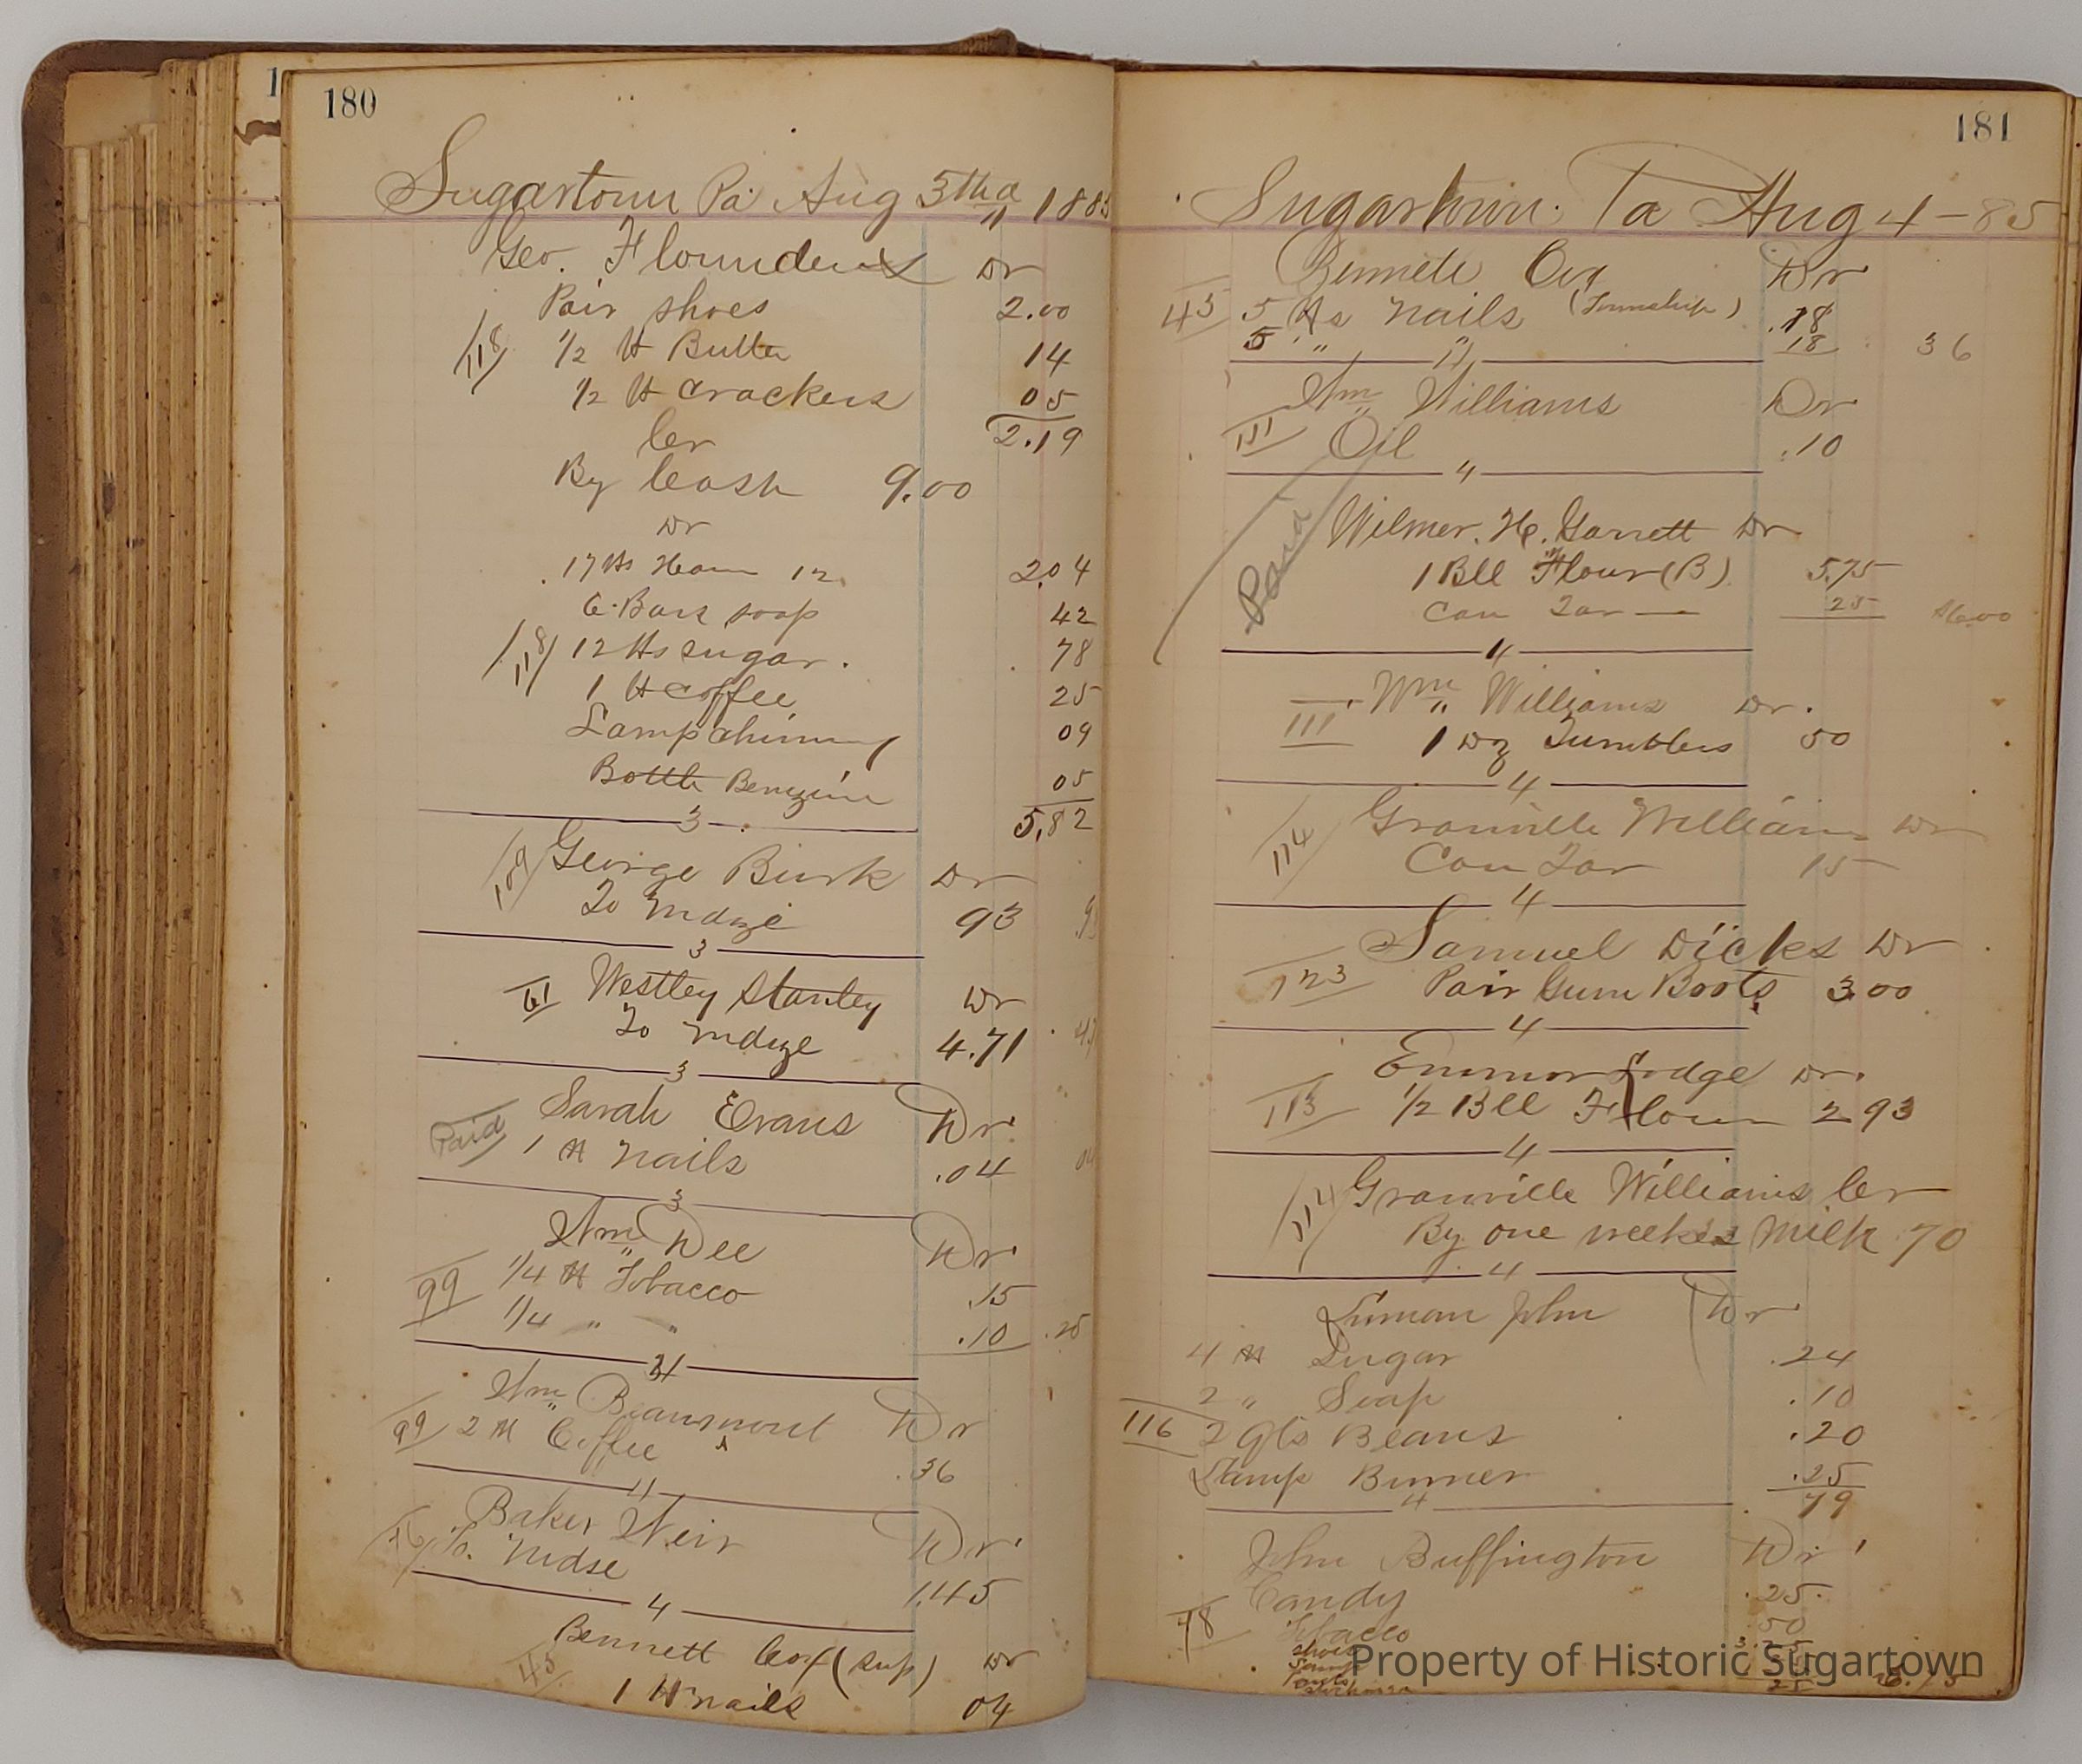 180
Sugartown Pa Aug 3rd 1885
Geo. Flounders Dr
Pair shoes 2.00
118 1/2 ℔ Butter 14
1/2 ℔ Crackers 05
2.19
Cr
By Cash 9.00
Dr
17 ℔s Ham 12 2.04
6 Bars soap 42
118 12 ℔s sugar. 78
1 ℔ Coffee 25
Lamp chimney 09
Bottle Benzine 05
3 5.82
109 George Burk Dr
To Mdze 93
3
61 Westley Stanley Dr
To Mdze 4.71
3
Sarah Evans Dr
Paid 1 ℔ Nails .04
3
Wm Dee Dr
99 1/4 ℔ Tobacco .15
1/4 " " .10
Wm Beaumont Dr
99 2 ℔ Coffee .36
Baker Weir Dr
To Mdse 1.45
4
Bennett Cox (Sup) Dr
45 1 ℔ nails 04
181
Sugartown Pa Aug 4-85
Bennett Cox Dr
45 5 ℔s Nails (Township) .18
5 " " .18 36
Wm Williams Dr
111 Oil .10
4
Paid Wilmer. H. Garrett Dr
1 Bll Flour (B) 5.75
Can Tar 25 $6.00
4
Wm Williams Dr.
111 1 Dz Tumblers 50
4
114 Granville Williams Dr
Can Tar 15
4
Samuel Dicks Dr
123 Pair Gum Boots 3.00
4
Emmor Lodge Dr.
113 1/2 Bll Flour 2 93
4
114 Granville Williams Cr
By one weeks Milk 70
4
John Dr
4 ℔ Sugar .24
2 " Soap .10
116 2 qts Beans .20
Lamp Burner .25
4 79
John Buffington Dr
Candy .25
78 Tobacco 50
Property of Historic Sugartown